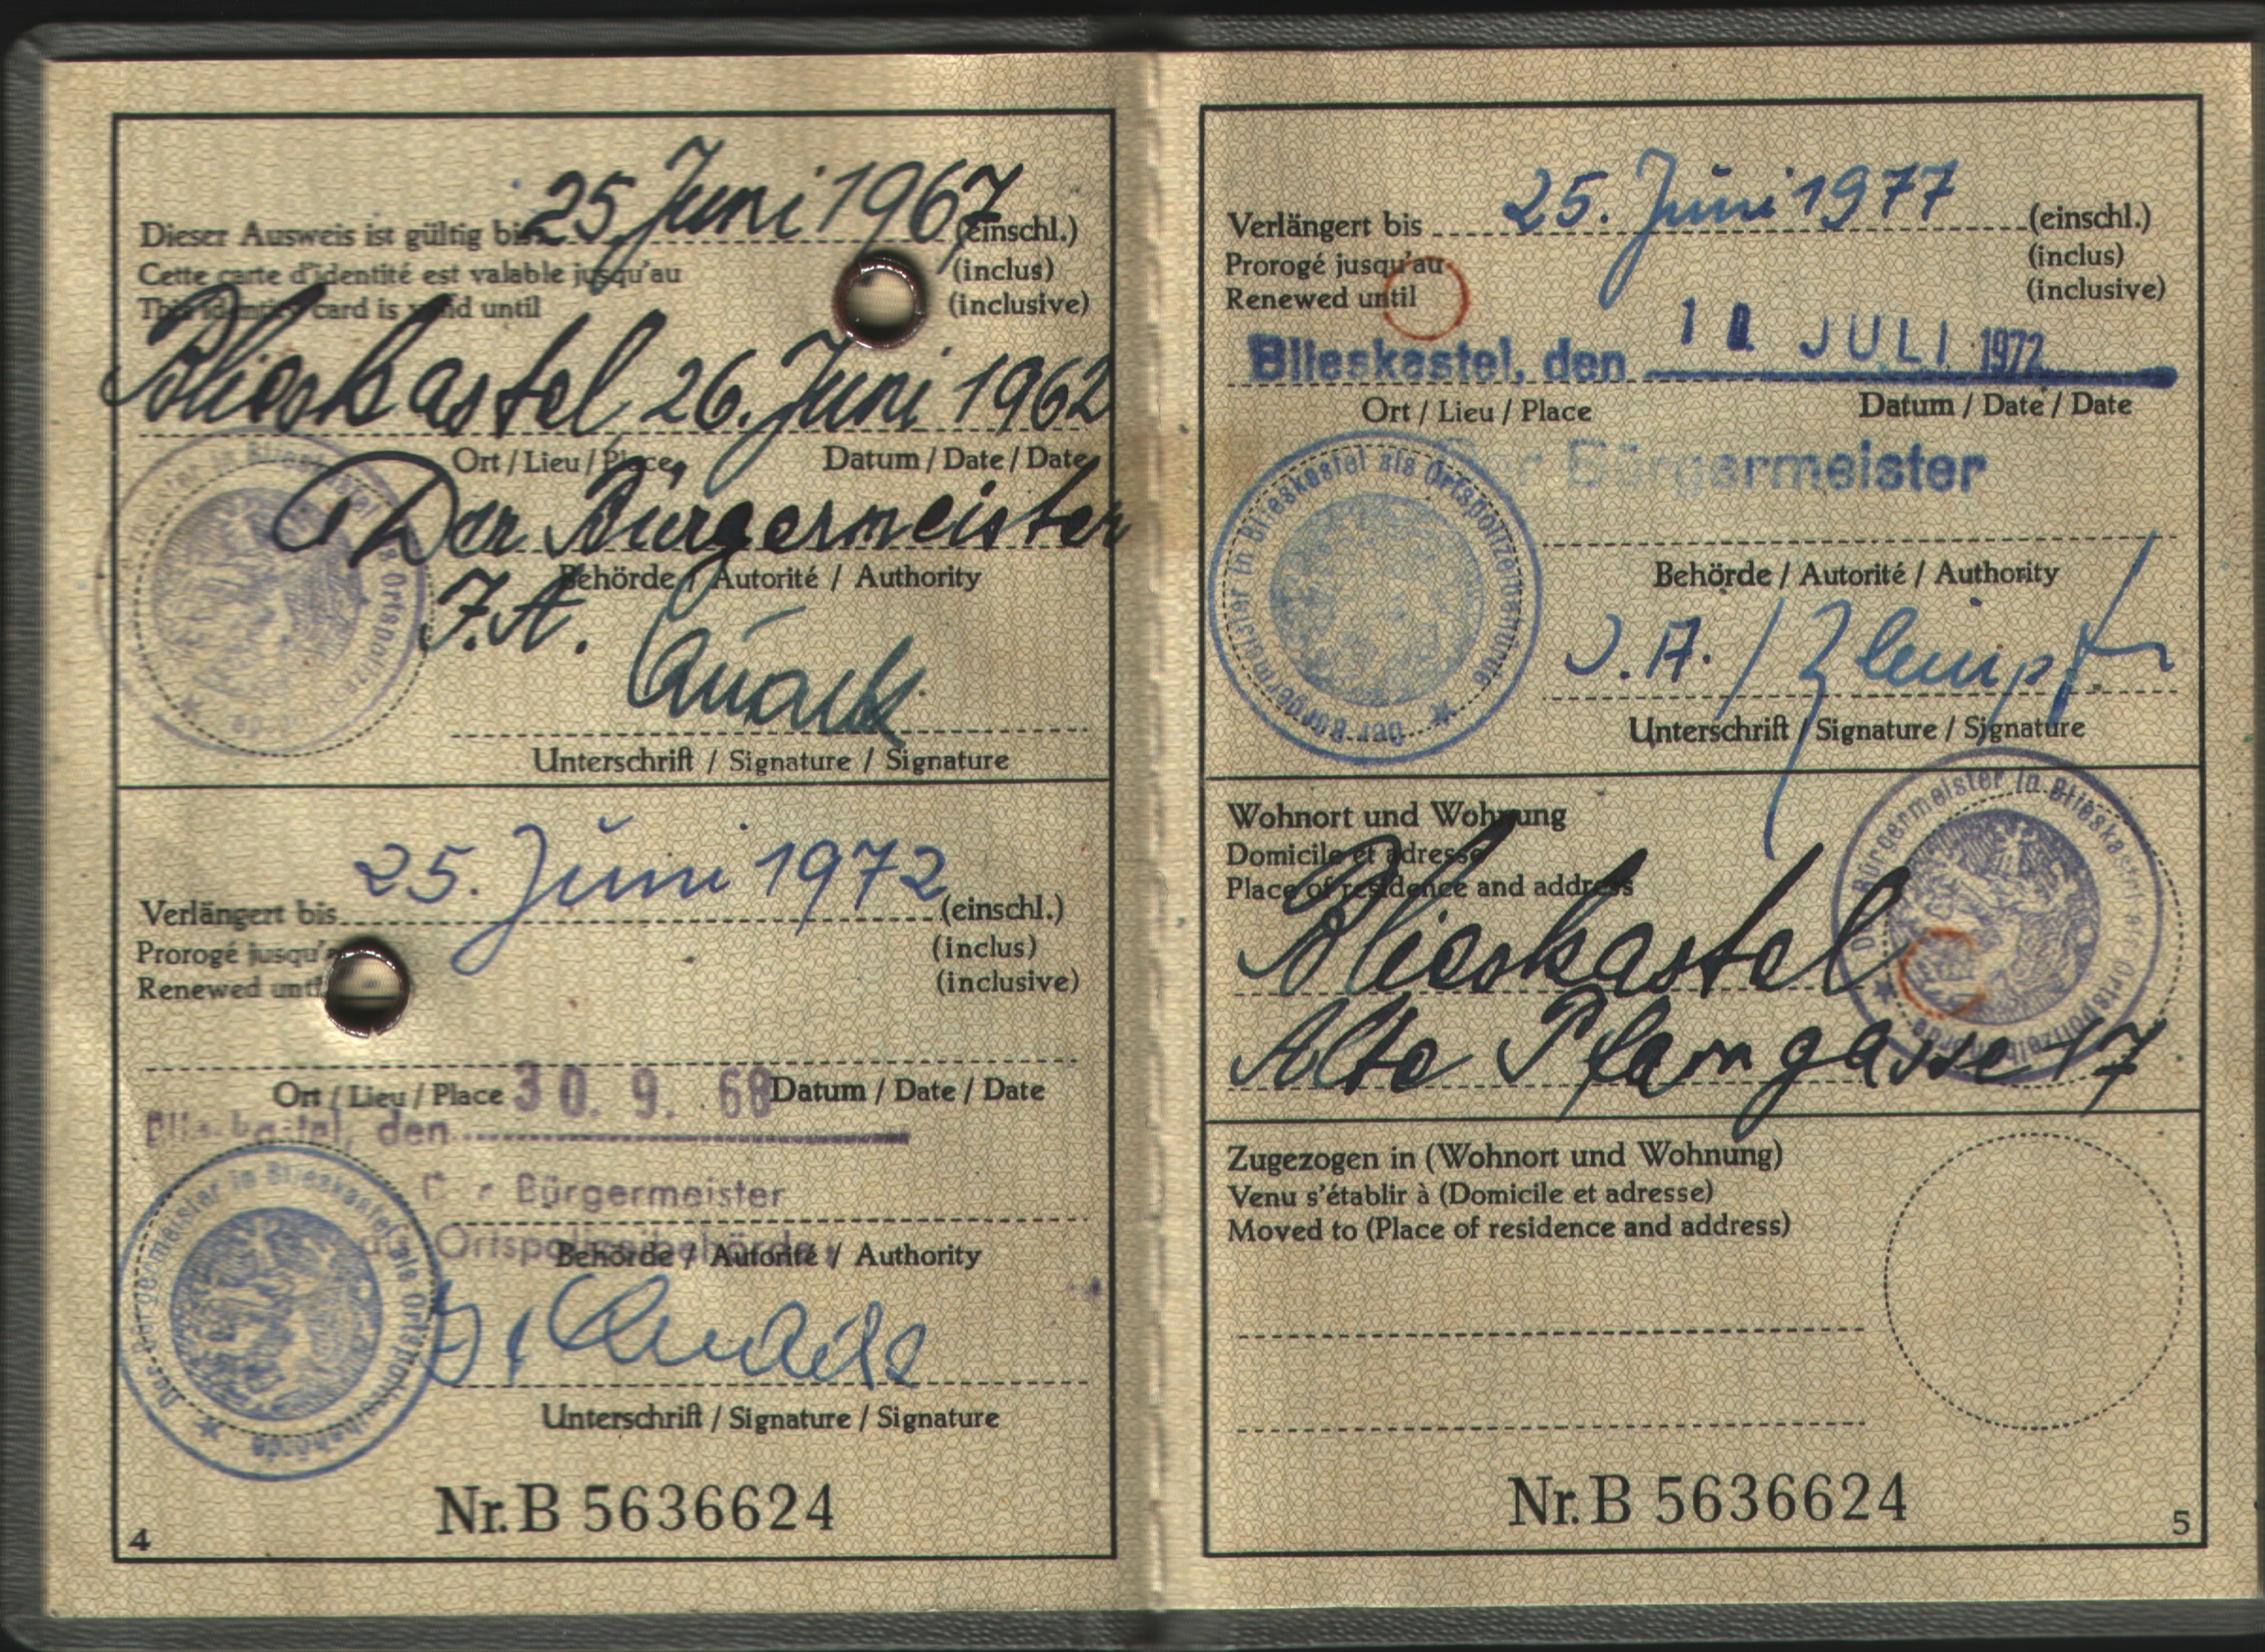 25 Juni 1967
Dieser Ausweis ist gültig bis (einschl.)
Cette carte d'identité est valable jusqu'au (inclus)
This identity card is valid until (inclusive)
Blieskastel 26. Juni 1962
Ort / Lieu / Place Datum / Date / Date
Der Bürgermeister
Behörde / Autorité / Authority
I.A.
Unterschrift / Signature / Signature
Der Bürgermeister in Blieskastel als Ortspolizeibehörde
25. Juni 1972
Verlängert bis (einschl.)
Prorogé jusqu'au (inclus)
Renewed until (inclusive)
Ort / Lieu / Place 30. 9. 68 Datum / Date / Date
Blieskastel, den
Der Bürgermeister
als Ortspolizeibehörde
Behörde / Autorité / Authority
Unterschrift / Signature / Signature
Der Bürgermeister in Blieskastel als Ortspolizeibehörde
Nr. B 5636624
4
25. Juni 1977
Verlängert bis (einschl.)
Prorogé jusqu'au (inclus)
Renewed until (inclusive)
Blieskastel, den JULI 1972
Ort / Lieu / Place Datum / Date / Date
Der Bürgermeister
Behörde / Autorité / Authority
J.A.
Unterschrift / Signature / Signature
Der Bürgermeister in Blieskastel als Ortspolizeibehörde
Wohnort und Wohnung
Domicile et adresse
Place of residence and address
Blieskastel
Alte Pfarrgasse 17
Der Bürgermeister in Blieskastel als Ortspolizeibehörde
Zugezogen in (Wohnort und Wohnung)
Venu s'établir à (Domicile et adresse)
Moved to (Place of residence and address)
Nr. B 5636624
5